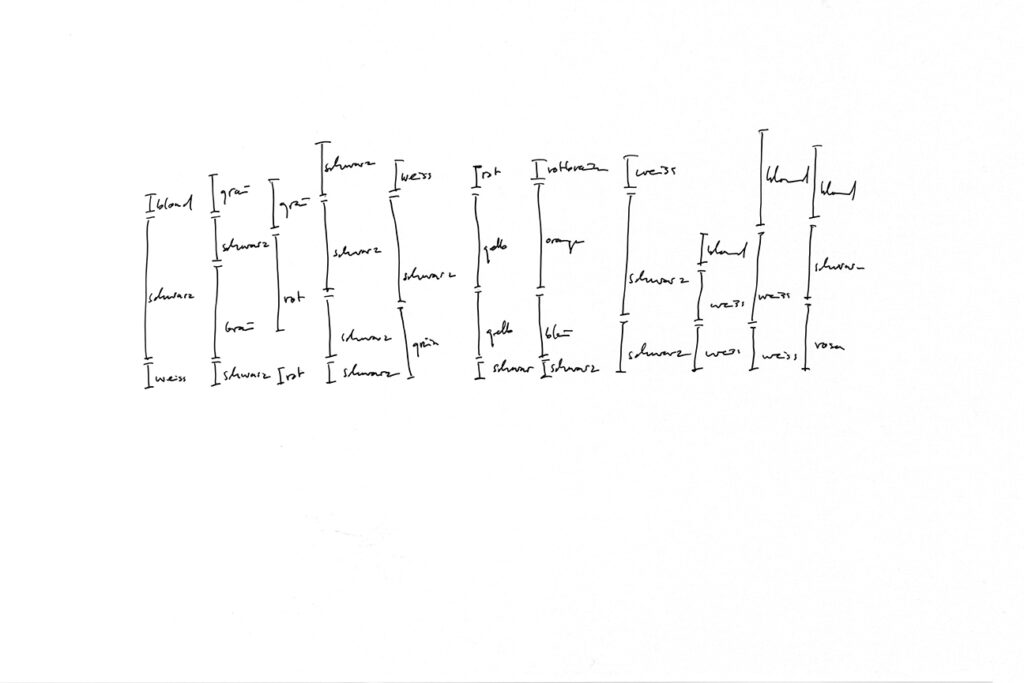 blond
schwarz
weiss
grau
schwarz
schwarz
grau
rot
rot
schwarz
schwarz
schwarz
schwarz
weiss
schwarz
grün
rot
gelb
gelb
schwarz
rotbraun
orange
blau
schwarz
weiss
schwarz
schwarz
blond
weiss
weiss
blond
weiss
weiss
blond
schwarz
rosa